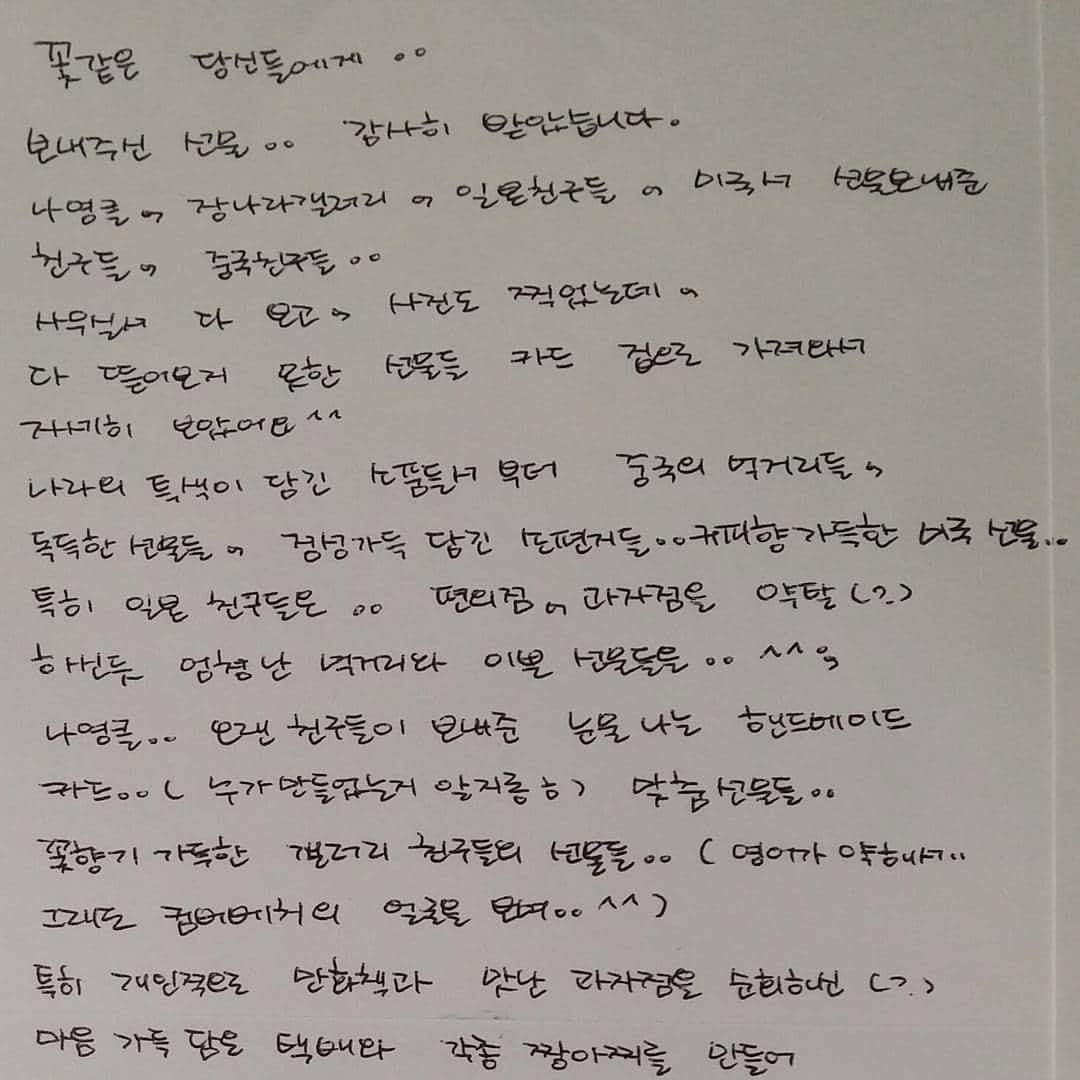 꽃같은 당신들에게..
보내주신 선물.. 감사히 받았습니다.
나영클, 장나라갤러리, 일본친구들, 미국서 선물보내준
친구들, 중국친구들..
사무실서 다 보고, 사진도 찍었는데,
다 뜯어보지 못한 선물들 카드 집으로 가져와서
자세히 보았어요^^
나라의 특색이 담긴 소품들서부터 중국의 먹거리들,
독특한 선물들, 정성가득 담긴 손편지들..커피향가득한 미국 선물..
특히 일본 친구들은.. 편의점, 과자점을 약탈(?)
하신듯 엄청난 먹거리와 이쁜 선물들을..^^,
나영클.. 오랜 친구들이 보내준 눈물 나는 핸드메이드
카드..( 누가만들었는지 알지롱ㅎ) 맞춤선물들..
꽃향기 가득한 갤러리 친구들의 선물들..( 영어가 약해서..
그래도 컴버배치의 얼굴을 보며..^^)
특히 개인적으로 만화책과 맛난 과자점을 순회하신(?)
마음 가득 담은 택배와 각종 짱아찌를 만들어